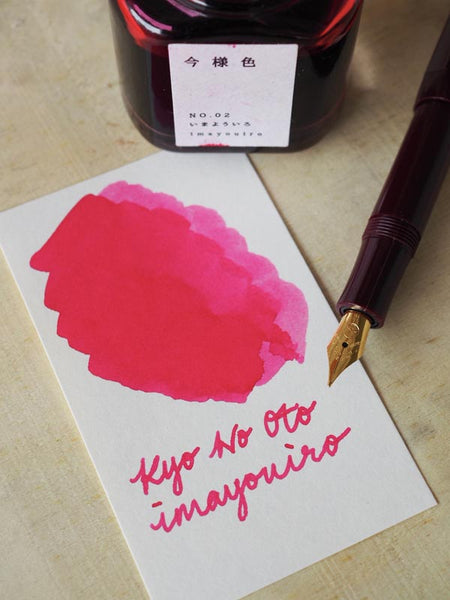 今様色
NO.02
いまよういろ
imayouiro
Kyo No Oto
imayouiro